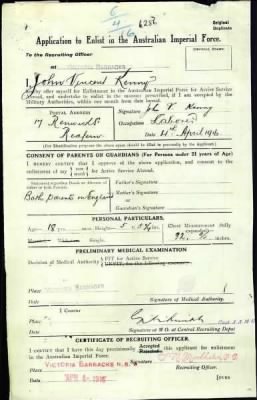 Original
Duplicate
6256
Application to Enlist in the Australian Imperial Force.
To the Recruiting Officer
at VICTORIA BARRACKS
I, John Vincent Kenny
hereby offer myself for Enlistment in the Australian Imperial Force for Active Service
Abroad, and undertake to enlist in the manner prescribed, if I am accepted by the
Military Authorities, within one month from this date.
POSTAL ADDRESS
Signature John V Kenny
Occupation Laborer
Redfern
Date 4th April 1916
(For identification purposes the above space should be filled in personally by the applicant)
CONSENT OF PARENTS OR GUARDIANS (For Persons under 21 years of Age)
Statement regarding Death or Absence of either or both Parents.
Both parents in England
Father's Signature
Mother's Signature
or
Guardian's Signature
PERSONAL PARTICULARS.
Age 18 yrs
Height 5
Chest Measurement fully
PRELIMINARY MEDICAL EXAMINATION
Decision of Medical Authority
FIT for Active Service
Place
Date
Signature of Medical Authority.
I Concur
Place
Date
Signature of M O Central Recruiting Depot
CERTIFICATE OF RECRUITING OFFICER
I CERTIFY that I have this day provisionally Accepted Rejected this applicant for enlistment
in the Australian Imperial Force.
Place VICTORIA BARRACKS N.S.W.
Recruiting Officer.
Date APR 4 - 1916